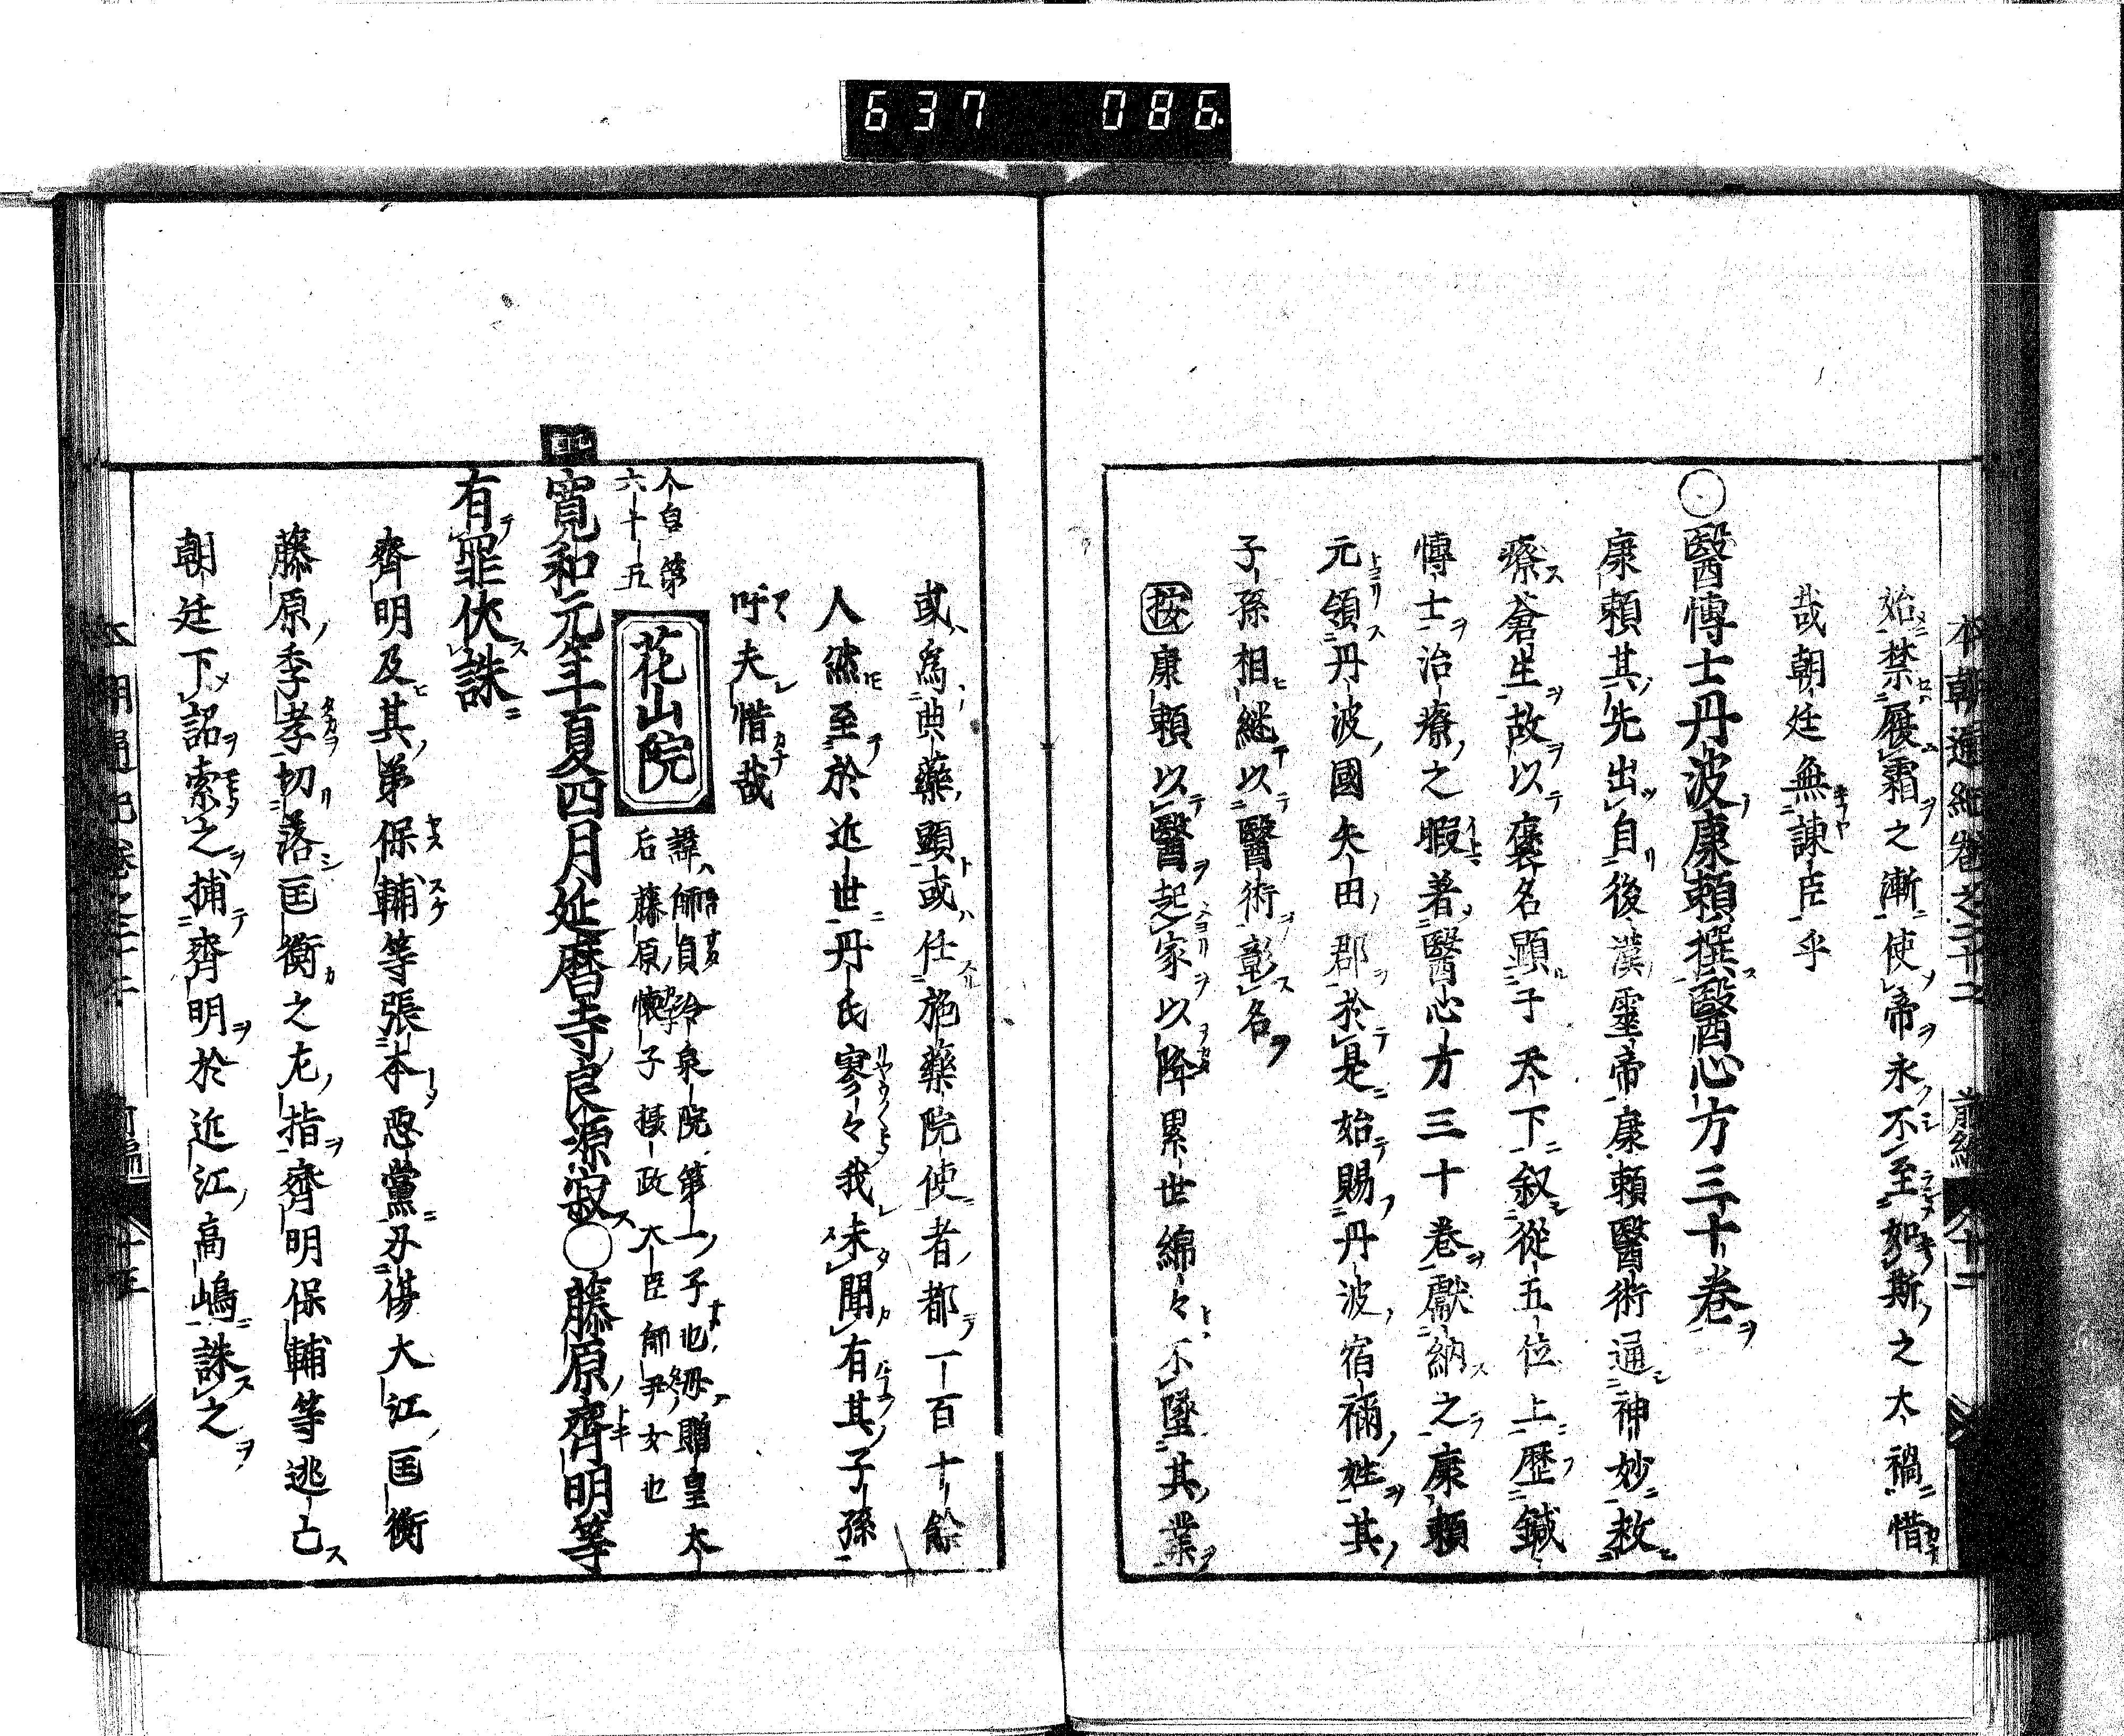 637 086
本朝通紀卷之二十二 前編
始禁履霜之漸使帝永不至如斯之大禍惜
哉朝廷無諫臣乎
○醫博士丹波康賴撰醫心方三十卷
康賴其先出自後漢靈帝康賴醫術通神妙救
療蒼生故以褒名顯于天下叙從五位上歷鍼
博士治療之暇著醫心方三十卷獻納之康賴
元領丹波國矢田郡於是始賜丹波宿禰姓其
子孫相繼以醫術彰名
按康賴以醫起家以降累世綿々不墜其業
或爲典藥顯或任施藥院使者都一百十餘
人然至於近世丹氏寥々我未聞有其子孫
吁夫惜哉
人皇第六十五
花山院
諱師貞冷泉院第一子也母贈皇太
后藤原懷子攝政大臣師尹女也
寬和元年夏四月延曆寺良源寂○藤原齊明等
有罪伏誅
齊明及其弟保輔等張本惡黨刃傷大江匡衡
藤原季孝切落匡衡之左指齊明保輔等逃亡
朝廷下詔索之捕齊明於近江高嶋誅之
本朝通紀卷之二十二 前編